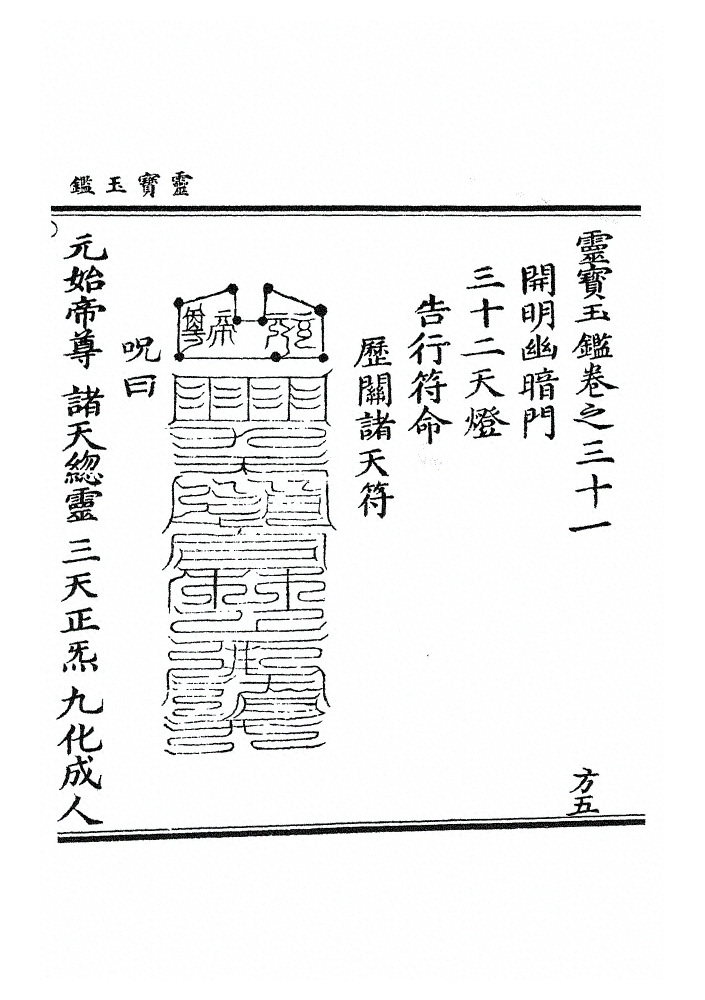 靈寶玉鑑
靈寶玉鑑卷之三十一
方五
開明幽暗門
三十二天燈
告行符命
歷關諸天符
呪曰
元始帝尊 諸天總靈 三天正炁 九化成人